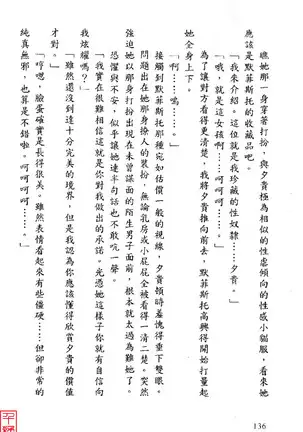 瞧她那一身穿著打扮，與夕貴極為相似的性虐傾向的性感小貓服，看來她
應該是默菲斯托的收藏品吧。
「我來介紹。這位就是我珍藏的性奴隸……夕貴。」
「哦，就是這女孩啊……呵呵呵。」
為了讓對方看得更清楚，我將夕貴推向前去，默菲斯托高興得開始打量起
她全身上下。
「啊……嗚……。」
接觸到默菲斯托那種宛如估價一般的視線，夕貴頓時羞愧得垂下雙眼。
出在她那身撩人的裝扮，無論乳房或小屁屁全被看得一清二楚。突然
強迫她以那身打扮出現在未曾謀面的陌生男子面前，根本就太過為難她了。
恐懼與不安，似乎讓她連半句話也不敢吭一聲。
「我實在很難相信這就是你對我做出的承諾。光憑她這樣子你就有自信向
我炫耀嗎？」
「雖然還沒到達十分完美的境界，但是我認為你應該懂得欣賞夕貴的價值
才對。」
「哼嗯，臉蛋確實是長得很美。雖然表情看起來有些僵硬……但卻非常的
純真無邪，也算是不錯啦。呵呵呵呵……。」
136